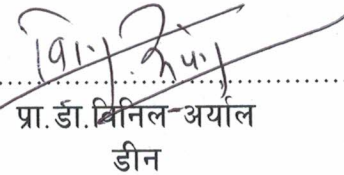 प्रा.डा.विनिल-अर्याल
डीन